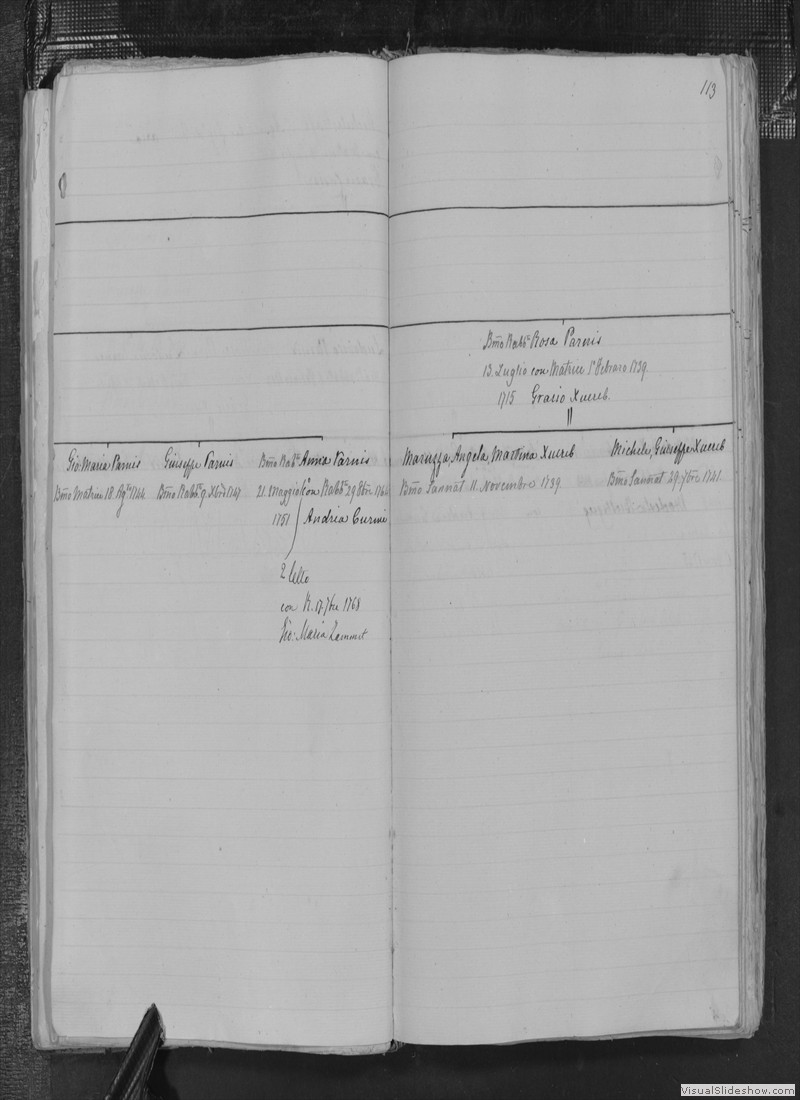 113
Bmo Rabto Rosa Parnis
13. Luglio con Matrice 1° Febraro 1739.
1715 Grazio Xuereb
Gio: Maria Parnis
Bmo Matrice 18. Ag.to 1744
Giuseppe Parnis
Bmo Rabto 9. Xbre 1747
Bmo Rabto Anna Parnis
21. Maggio 1° con Rabto 29 8bre
1751 Andria Curmi
2 letto
con 17. 7bre 1768
Gio: Maria Zammit
Maruzza, Angela, Martina Xuereb
Bmo Sannat 11. Novembre 1739.
Michele, Giuseppe Xuereb
Bmo Sannat 29. 7bre 1741.
VisualSlideshow.com